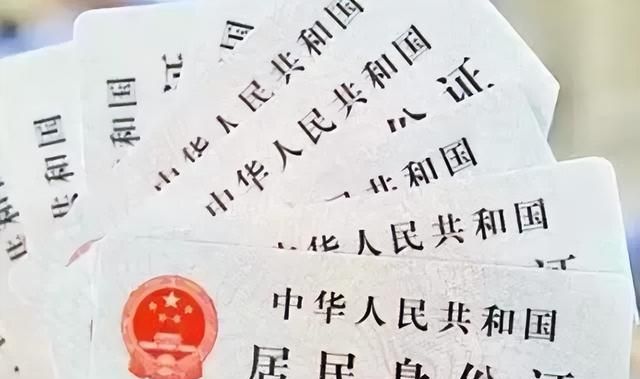 和国
共和国
证
国
中华人民共和国
中华人民共和国
证
共和国
中华人民共和国
证
中华人民共和国
居民身份证